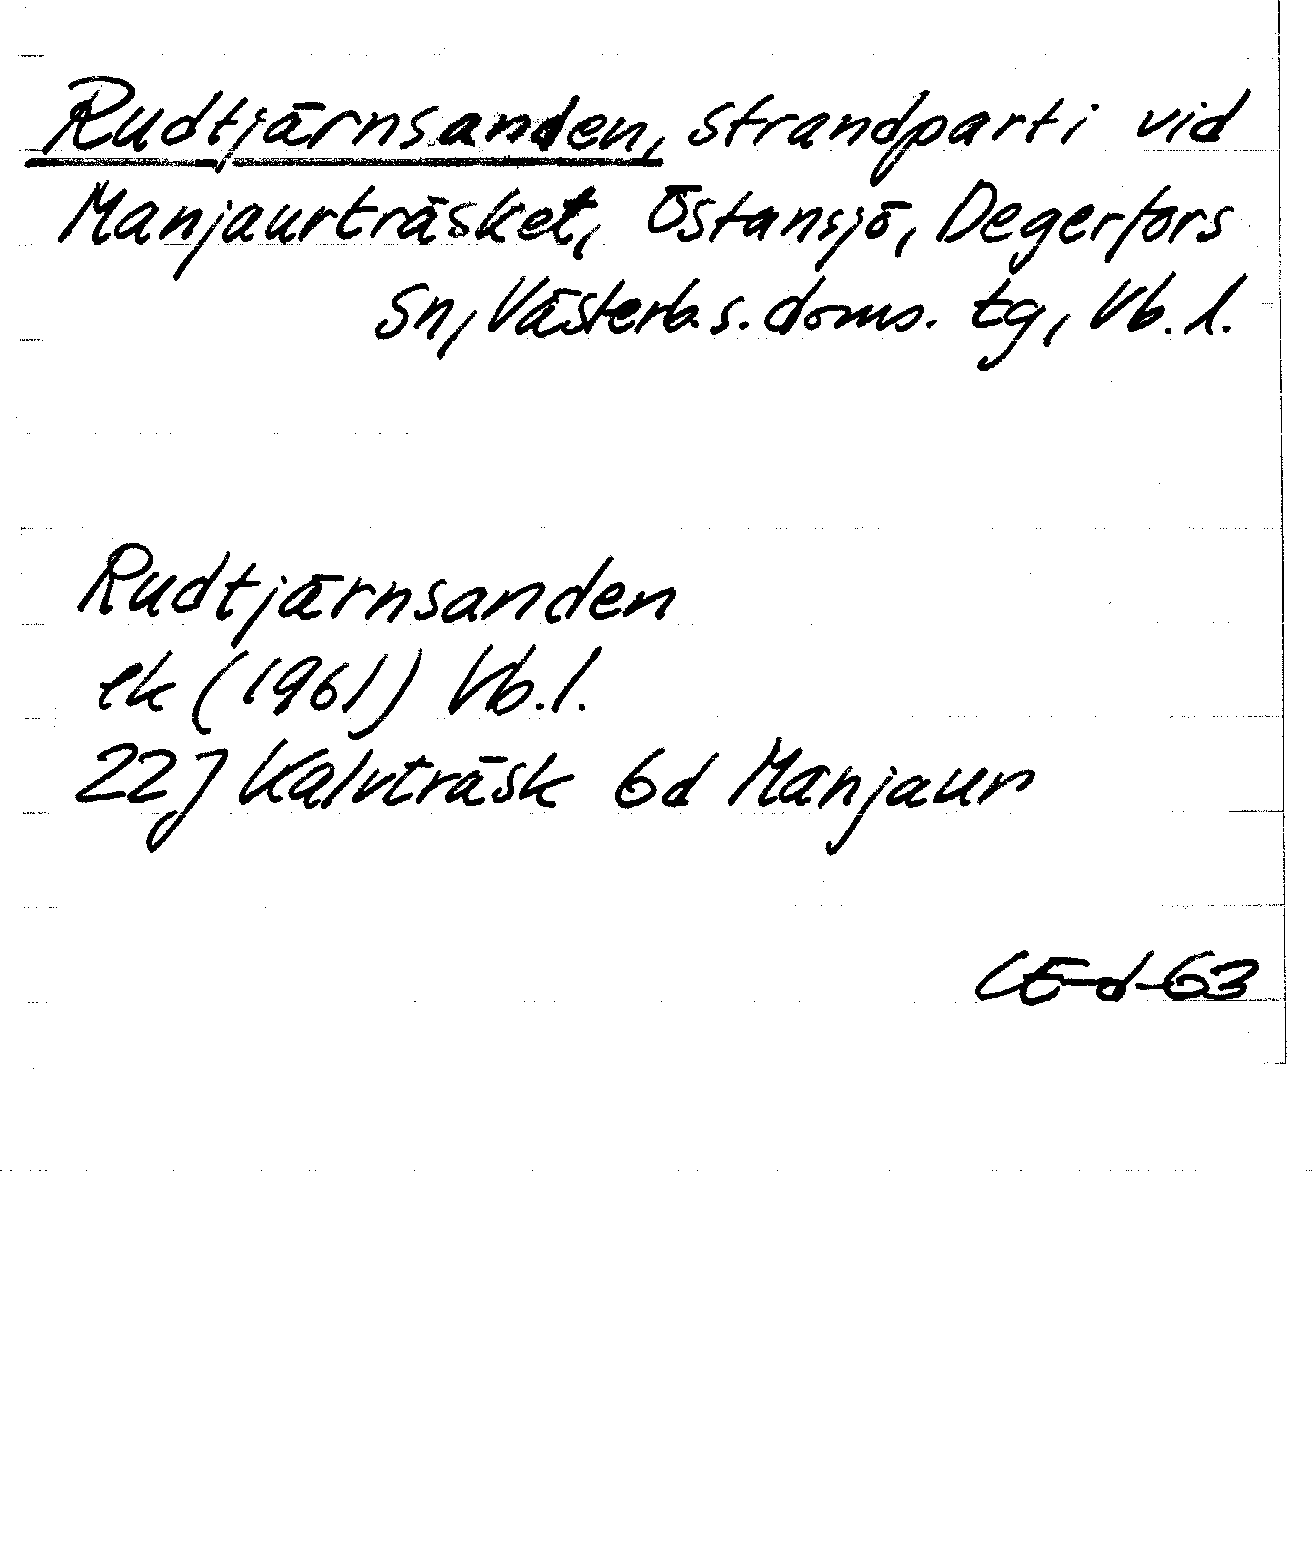 Rudtjärnsanden, strandparti vid
Manjaurträsket, Östansjö, Degerfors
sn, Västerb. s. doms. tg, Vb. l.
Rudtjärnsanden
ek (1961) Vb. l.
22J Kalvträsk 6d Manjaur
CE-d-63